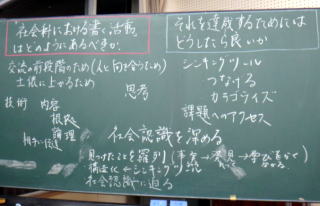 社会科における書く活動
はどのようにあるべきか。
それを達成するためには
どうしたら良いか
交流の前段階のため(人と向き合うため)
土俵に上がるため
思考
技術 内容
根拠
論理
相手に伝達
シンキングツール
つなげる
カテゴライズ
課題へのアクセス
社会認識を深める
見つけたことを羅列(事実→発見→学び
構造化←シンキング
社会認識に迫る